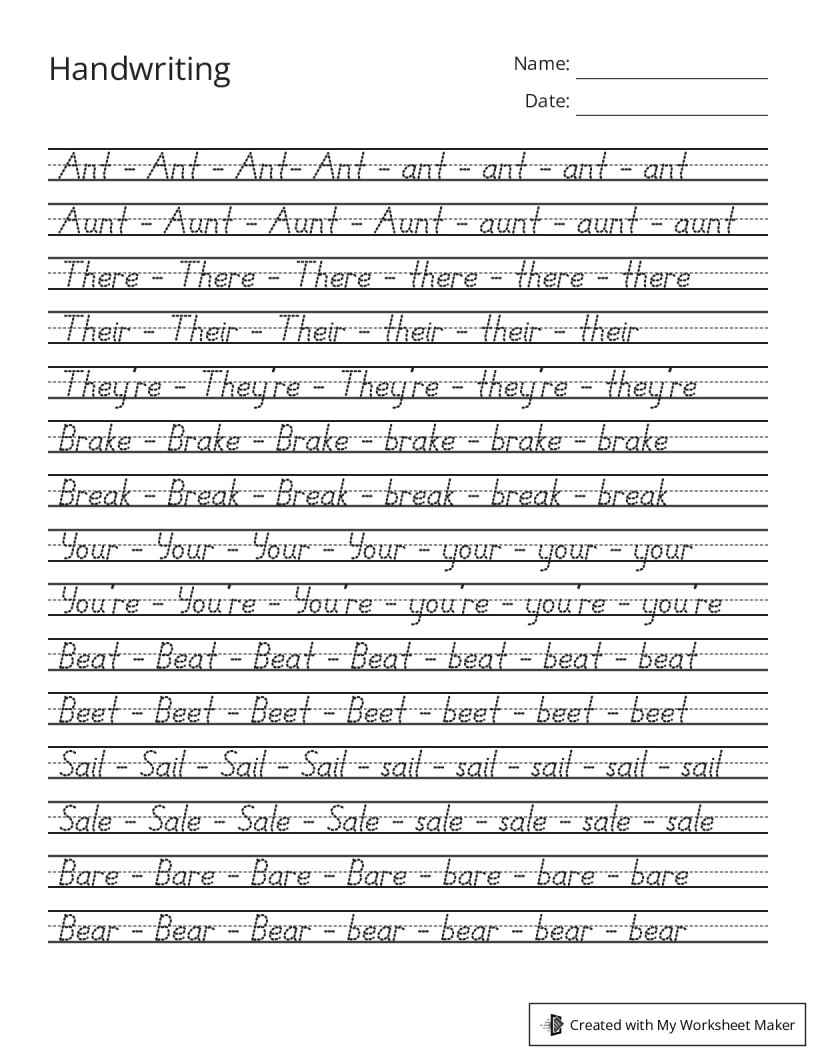 Handwriting
Name:
Date:
Ant - Ant - Ant- Ant - ant - ant - ant - ant
Aunt - Aunt - Aunt - Aunt - aunt - aunt - aunt
There - There - There - there - there - there
Their - Their - Their - their - their - their
They're - They're - They're - they're - they're
Brake - Brake - Brake - brake - brake - brake
Break - Break - Break - break - break - break
Your - Your - Your - Your - your - your - your
You're - You're - You're - you're - you're - you're
Beat - Beat - Beat - Beat - beat - beat - beat
Beet - Beet - Beet - Beet - beet - beet - beet
Sail - Sail - Sail - Sail - sail - sail - sail - sail - sail
Sale - Sale - Sale - Sale - sale - sale - sale - sale
Bare - Bare - Bare - Bare - bare - bare - bare
Bear - Bear - Bear - bear - bear - bear - bear
Created with My Worksheet Maker